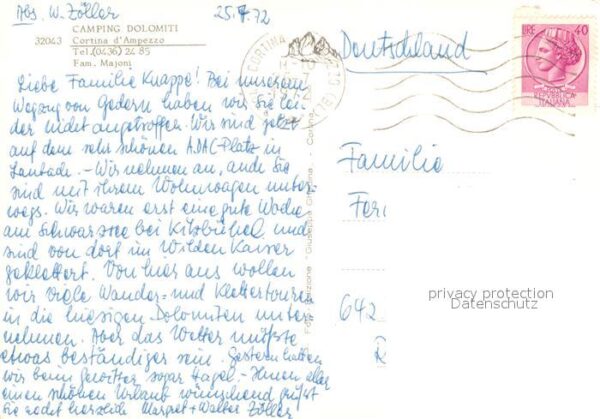 Abs. W. Zöller 25.7.72
CAMPING DOLOMITI
32043 Cortina d'Ampezzo
Tel.(0436) 24 85
Fam. Majoni
Liebe Familie Knappe! Bei unserem
Wegzug von Gedern haben wir Sie lei
der nicht angetroffen. Wir sind jetzt
auf dem sehr schönen ADAC-Platz in
- Wir nehmen an, auch Sie
sind mit Ihrem Wohnwagen unter-
wegs. Wir waren erst eine gute Woche
am Schwarzsee bei Kitzbühel und
sind von dort im Wilden Kaiser
geklettert. Von hier aus wollen
wir viele Wander- und Klettertouren
in die hiesigen Dolomiten unter
nehmen. Aber das Wetter müsste
etwas beständiger sein. Gestern hatten
wir beim Gewitter sogar Hagel. - Ihnen allen
einen schönen Urlaub wünschend grüßt
Sie recht herzlich Margret + Walter Zöller
CORTINA
Deutschland
LIRE 40
REPUBBLICA
ITALIANA
Familie
Fer
642
privacy protection
Datenschutz